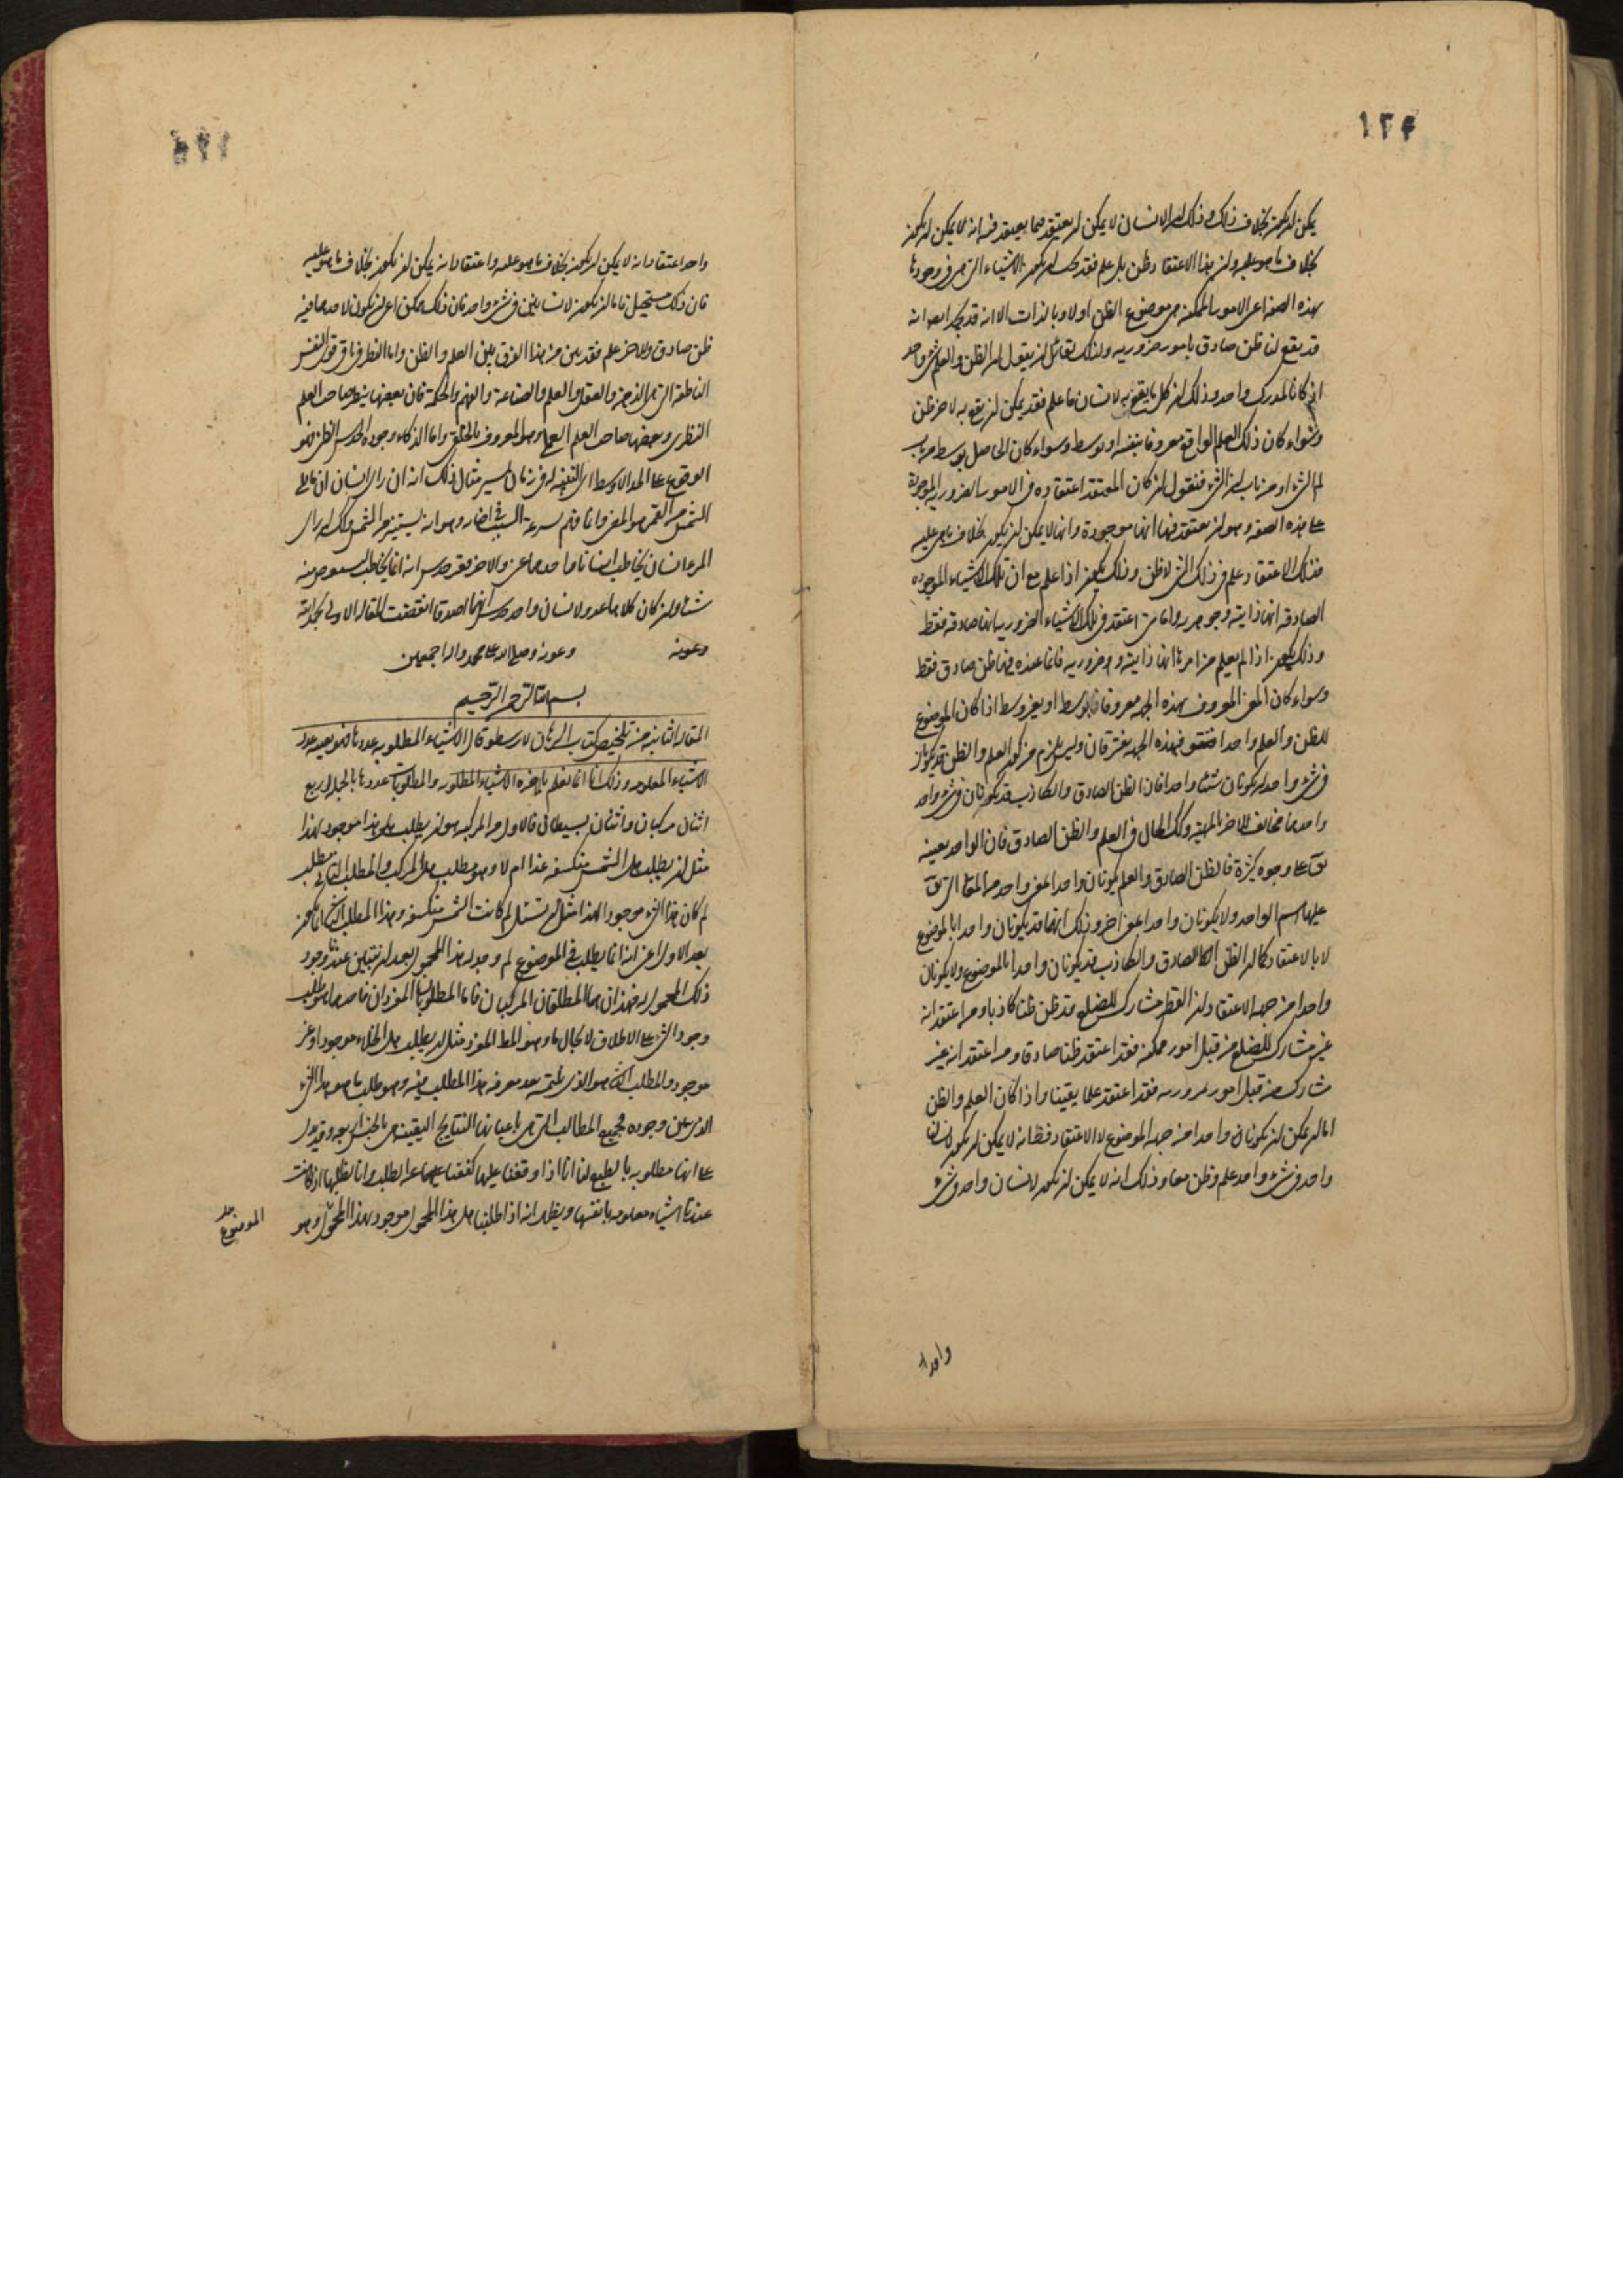 ١٢۴
يمكن ان يكون بخلاف ذلك وذلك ان الانسان لا يمكن ان يعتقد فيما يعتقد فيه انه لا يمكن ان يكون
بخلاف ما هو عليه وان هذا الاعتقاد ظن بل علم فقد يجب ان يكون الاشياء التي هي في وجودها
بهذه الصفة اعني الامور الممكنة هي موضوع الظن اولا وبالذات الا انه قد يظهر ايضا انه
قد يقع لنا ظن صادق بامور ضرورية ولذلك لقائل ان يقول ان الظن والعلم شيء واحد
اذ كانا لمدرك واحد وذلك ان كل ما يقع به لانسان ما علم فقد يمكن ان يقع به لاخر ظن
وسواء كان ذلك العلم الواقع معروفا بنفسه او بوسط وسواء كان الحاصل بوسط من باب
لم الشيء او من باب ان الشيء فنقول ان كان المعتقد اعتقاده في الامور الضرورية الموجودة
على هذه الصفة وهو ان يعتقد فيها انها موجودة وانها لا يمكن ان يكون بخلاف ما هي عليه
فذلك الاعتقاد علم في ذلك الشيء لا ظن وذلك يكون اذا علم مع ان تلك الاشياء الموجودة
الصادقة انها ذاتية وجوهرية واما متى اعتقد في تلك الاشياء الضرورية انها صادقة فقط
وذلك يكون اذا لم يعلم من امرها انها ذاتية وضرورية فانما عنده فيها ظن صادق فقط
وسواء كان المعنى المعروف بهذه الجهة معروفا بوسط او بغير وسط اذا كان الموضوع
للظن والعلم واحدا فبهذه الجهة يفترقان وليس يلزم من كون العلم والظن قد يكونان
في شيء واحد ان يكونان شيئا واحدا فان الظن الصادق والكاذب قد يكونان في شيء واحد
واحدهما مخالف للاخر بالمهية وكك الحال في العلم والظن الصادق فان الواحد بعينه
يق على وجوه كثيرة فالظن الصادق والعلم يكونان واحدا بمعنى واحد من المعاني التي يق
عليها اسم الواحد ولا يكونان واحدا بمعنى اخر وذلك انهما قد يكونان واحدا بالموضوع
لا بالاعتقاد كما ان الظن الصادق والكاذب قد يكونان واحدا بالموضوع ولا يكونان
واحدا من جهة الاعتقاد ان القطر مشارك للضلع فقد ظن ظنا كاذبا ومن اعتقد انه
غير مشارك للضلع من قبل امور ممكنة فقد اعتقد ظنا صادقا ومن اعتقد انه غير
مشارك من قبل امور ضرورية فقد اعتقد علما يقينا واذا كان العلم والظن
انما يمكن ان يكونان واحدا من جهة الموضوع لا الاعتقاد فظ انه لا يمكن ان يكون لانسان
واحد في شيء واحد علم وظن معا وذلك انه لا يمكن ان يكون لانسان واحد في شيء
واحد
واحد اعتقاد انه لا يمكن ان يكون بخلاف ما هو عليه واعتقاد انه يمكن ان يكون بخلاف ما هو عليه
فان ذلك مستحيل فاما ان يكون لانسانين في شيء واحد فان ذلك ممكن اعني ان يكون لاحدهما فيه
ظن صادق وللاخر علم فقد تبين من هذا الفرق بين العلم والظن واما النظر في باقي قوى النفس
الناطقة التي هي الذهن والعقل والعلم والصناعة والفهم والحكمة فان بعضها ينظر صاحب العلم
النظري وبعضها صاحب العلم العملي وهو المعروف بالخلقي واما الذكاء وجودة الحدس الظن فهو
الوقوع على الحد الاوسط اي التنبه له في زمان يسير مثال ذلك انه ان راى انسان ان ما يلي
الشمس من القمر هو المضيء دائما فهم بسرعة السبب في ذلك وهو انه يستنير من الشمس وكك ان راى
المرء انسان يخاطب انسانا ما احدهما غني والاخر فقير حدس انه انما يخاطب ليستقرض منه
شيئا وان كان كلاهما عدو لانسان واحد حدس انهما اصدقا انقضت المقالة الاولى بحمد الله
وعونه وصلى الله على محمد واله اجمعين
بسم الله الرحمن الرحيم
المقالة الثانية من تلخيص كتاب البرهان لارسطو قال الاشياء المطلوبة عددها هو بعينه عدد
الاشياء المعلومة وذلك انا انما نعلم باخرة الاشياء المطلوبة والمطلوبات عددها بالجملة اربع
اثنان مركبان واثنان بسيطان فالاول من المركبة هو ان يطلب هل هذا موجود لهذا
مثل ان يطلب هل الشمس منكسفة غدا ام لا وهو مطلب هل المركب والمطلب الثاني مطلب
لم كان هذا الشيء موجودا لهذا مثل ان تسئل لم كانت الشمس منكسفة وهذا المطلب انما يكون
بعد الاول اعني انه انما يطلب في الموضوع لم وجد له هذا المحمول بعد ان يتبين عندنا وجود
ذلك المحمول له فهذان هما المطلقان المركبان فاما المطلوبان المفردان فاحدهما هو طلب
وجود الشيء على الاطلاق لا بحال ما وهو المط المفرد مثل ان يطلب هل الخلاء موجود او غير
موجود والمطلب الثاني هو الذي يلتمس بعد معرفة هذا المطلب منه وهو طلب ما هو هذا الشيء
الذي تبين وجوده فجميع المطالب التي هي باعيانها النتايج اليقينية هي بالجنس اربعة وقد يدل
على انها مطلوبة بالطبع لنا انا اذا وقفنا عليها كففنا عن الطلب وانا نطلبها اذ كانت
عندنا اشياء معلومة بانفسها ويظهر انه اذا طلبنا هل هذا المحمول موجود لهذا المحمول وهو
الموضوع